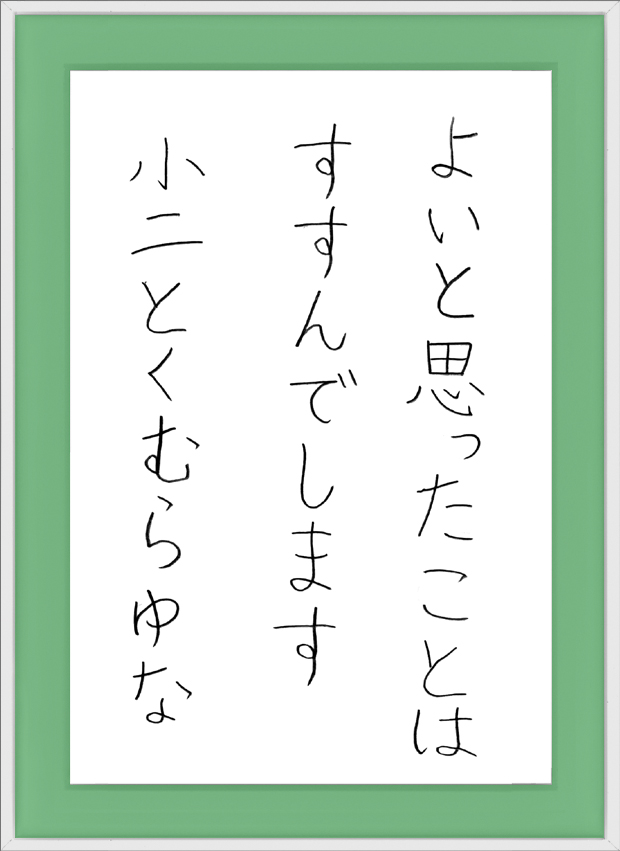 よいと思ったことは
すすんでします
小二とくむらゆな